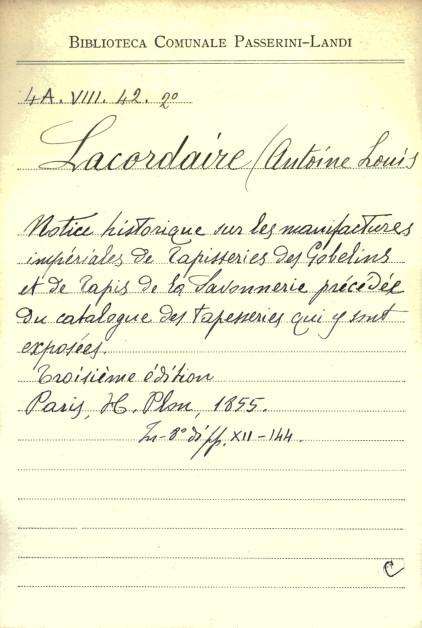 BIBLIOTECA COMUNALE PASSERINI-LANDI
4A. VIII. 42. 2º
Lacordaire (Antoine Louis
Notice historique sur les manufactures
impériales de Tapisseries des Gobelins
et de Tapis de la Savonnerie précédée
du catalogue des tapesseries qui y sont
exposées.
Troisième édition
Paris, H. Plon, 1855.
In-8º di pp. XII-144.
C